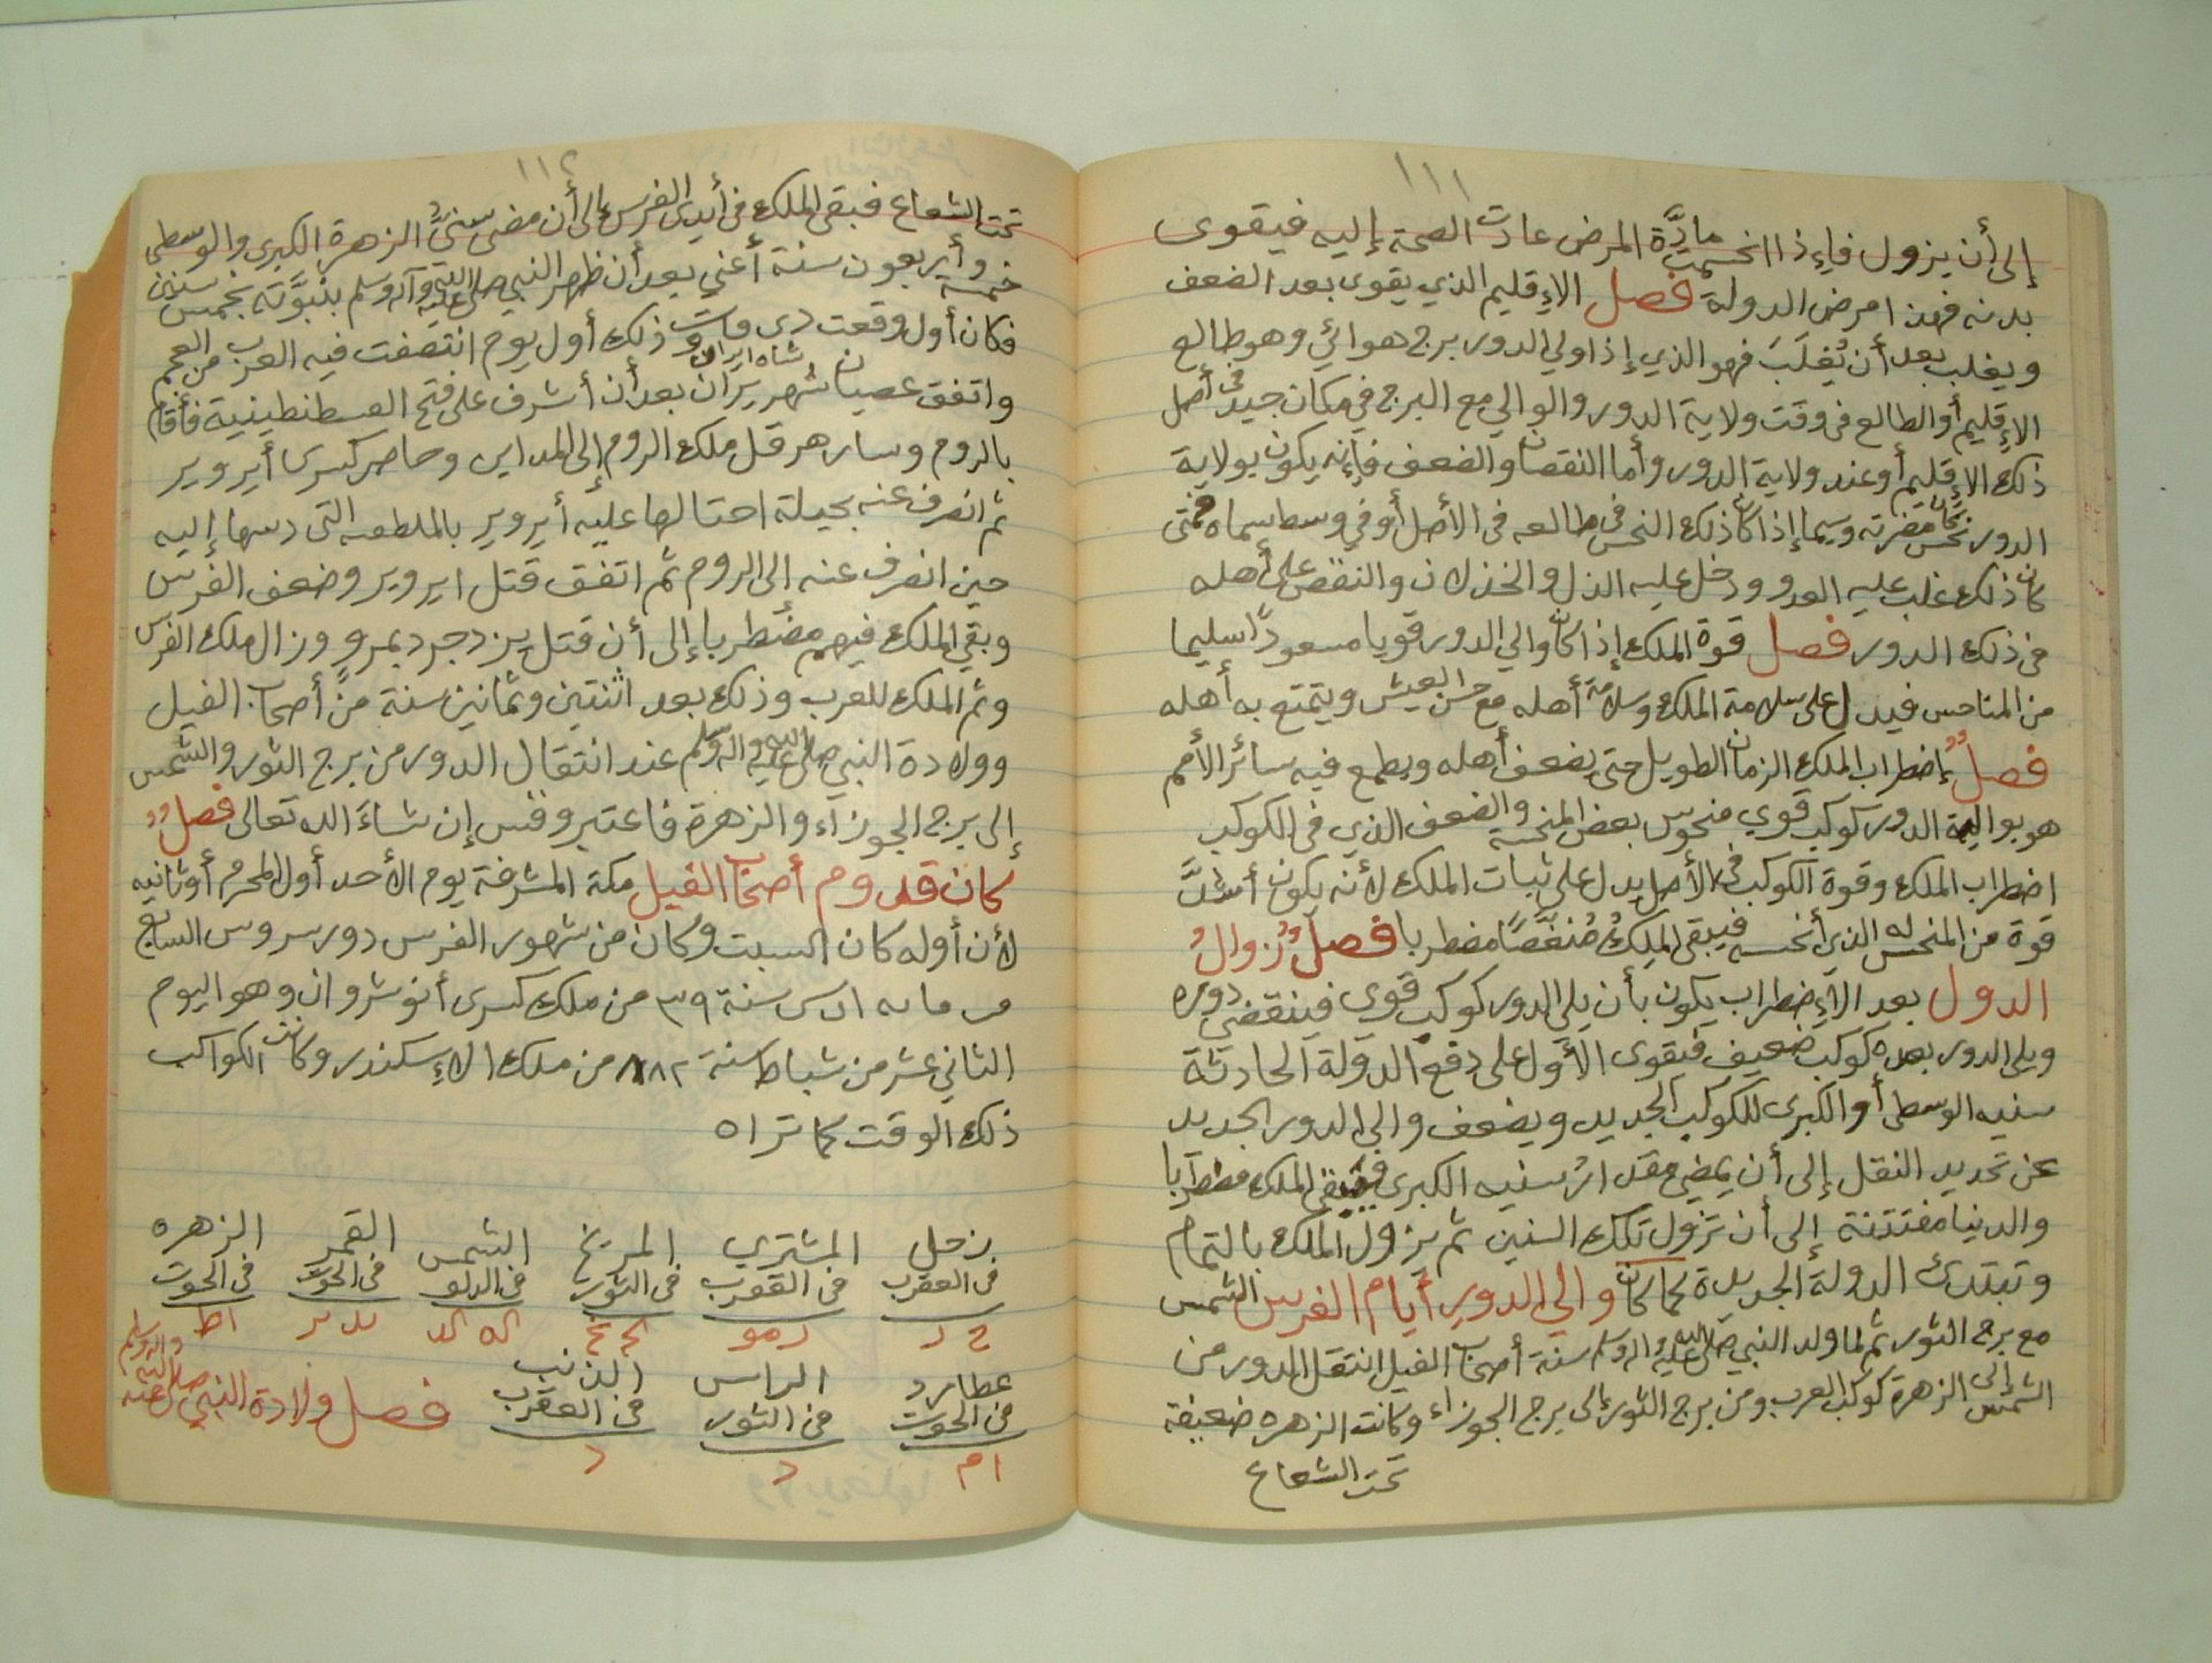 ١١١
إلى أن يزول فإذا انحسمت مادَّة المرض عادت الصحة إليه فيقوى
بدنه فهذا مرض الدولة فصل الإقليم الذي يقوى بعد الضعف
ويغلب بعد أن يُغلَبَ فهو الذي إذا ولي الدور برج هوائي وهو طالع
الإقليم أو الطالع فى وقت ولاية الدور والوالي مع البرج في مكان جيد فى أصل
ذلك الإقليم أو عند ولاية الدور وأما النقصان والضعف فإنه يكون بولاية
الدور نحس مضرته وسيما إذا كان ذلك النحس فى طالعه فى الأصل أو في وسط سماه فمتى
كان ذلك غلب عليه العدو ودخل عليه الذل والخذلان والنقص على أهله
فى ذلك الدور فصل قوة الملك إذا كان والي الدور قويا مسعودًا سليما
من المناحس فيدل على سلامة الملك وسلامة أهله مع حسن العيش ويتمتع به أهله
فصلٌ إضطراب الملك الزمان الطويل حتى يضعف أهله ويطمع فيه سائر الأمم
هو بوالية الدور كوكب قوي منحوس بعض المنحسة والضعف الذي فى الكوكب
اضطراب الملك وقوة الكوكب فى الأصل يدل على ثبات الملك لأنه يكون أشدَّ
قوة من المنحس له الذي أنحسه فيبقى الملكُ مُنغَّصًا مضطربا فصلٌ زوالُ
الدول بعد الإضطراب يكون بأن يلي الدور كوكب قوي فينقضي دوره
ويلى الدور بعده كوكب ضعيف فيقوى الأول على دفع الدولة الحادثة
سنيه الوسطى أو الكبرى للكوكب الجديد ويضعف والي الدور الجديد
عن تحديد النقل إلى أن يمضي مقدار سنيه الكبرى فيبقى الملك مضطربا
والدنيا مفتتنة إلى أن تزول تلك السنين ثم يزول الملك بالتمام
وتبتدئ الدولة الجديدة كما كان والي الدور أيام الفرس الشمس
مع برج الثور ثم لما ولد النبي صلى الله عليه واله وسلم سنة أصحاب الفيل انتقل الدور من
الشمس إلى الزهرة كوكب العرب ومن برج الثور إلى برج الجوزاء وكانت الزهره ضعيفة
تحت الشعاع
١١٢
تحت الشعاع فبقى الملك فى أيدى الفرس إلى أن مضى سنيُّ الزهرة الكبرى والوسطى
خمسة وأربعون سنة أعني بعد أن ظهر النبي صلى الله عليه وآله وسلم بنبوَّته بخمس سنين
فكان أول وقعت دى وذلك أول يوم انتصفت فيه العرب من العجم
واتفق عصيان شهريران شاه ايران بعد أن أشرف على فتح القسطنطينية فأقام
بالروم وسار هرقل ملك الروم إلى المداين وحاصر كسرى أيرویر
ثم انصرف عنه بحيلة احتالها عليه أيروير بالملطعه التى دسها إليه
حين انصرف عنه إلى الروم ثم اتفق قتل ايروير وضعف الفرس
وبقي الملك فيهم مضطربا إلى أن قتل يزدجرد بمرو وزال ملك الفرس
وتم الملك للعرب وذلك بعد اثنتين وثمانين سنة من أصحاب الفيل
وولادة النبي صلى الله عليه واله وسلم عند انتقال الدور من برج الثور والشمس
إلى برج الجوزاء والزهرة فاعتبر وقس إن شاء الله تعالى فصلٌ
كان قدوم أصحاب الفيل مكة المشرفة يوم الأحد أول المحرم أو ثانيه
لأن أوله كان السبت وكان من شهور الفرس دور سروس السابع
سنة ٣٩ من ملك كسرى أنوشروان وهو اليوم
الثاني عشر من شباط سنة ٨٨٢ من ملك الإسكندر وكانت الكواكب
ذلك الوقت كما تراه
زحل المشتري المريخ الشمس القمر الزهره
فى العقرب فى العقرب فى الثور فى الدلو فى الحوت فى الحوت
عطارد الراس الذنب
فى الحوت فى الثور فى العقرب
ام د د
فصل ولادة النبي صلى الله عليه واله وسلم